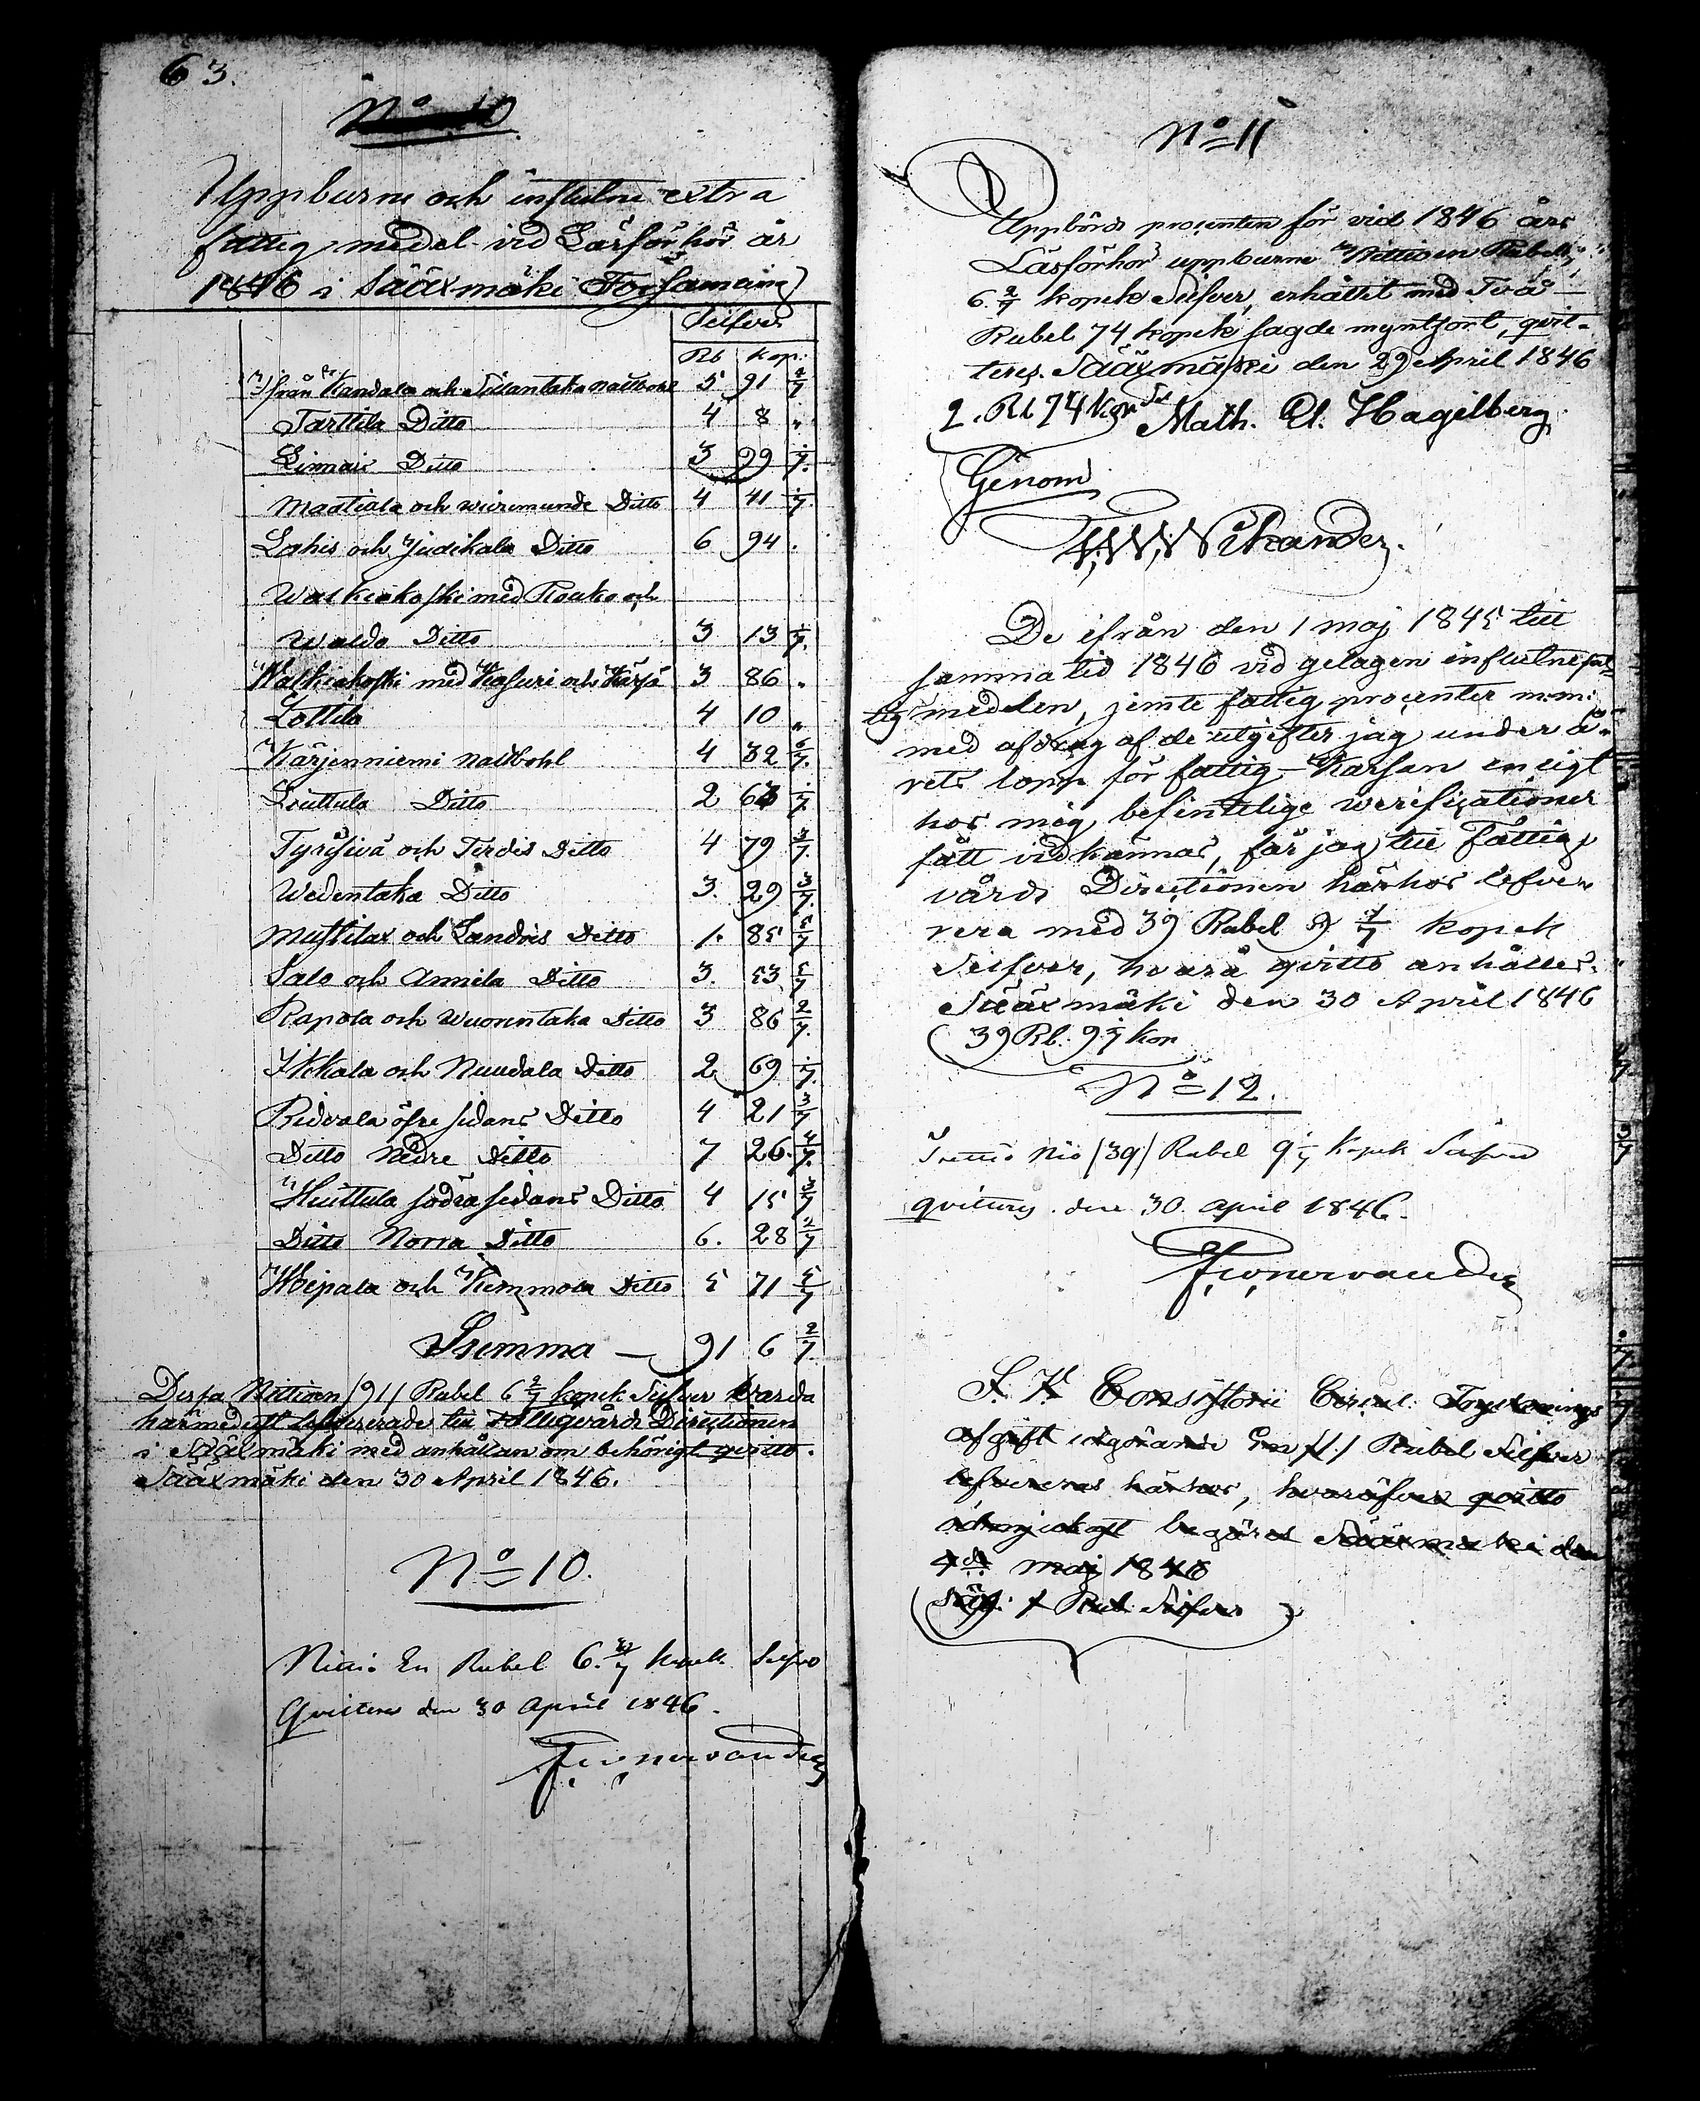 63.
No 10
Uppburne och influtne extra
fattig medel vid Läsförhör år
1846 i Sääxmäki Församling
Silfver
Rb kop:
från Kandala och Sillantaka nattbohl 5 91 2/7
Tarttila Ditto 4 8 "
Linnais Ditto 3 99 1/7.
Maatiala och wiiremunde Ditto 4 41 1/7.
Lahis och Judikala Ditto 6 94 .
Walkiakoski med Rouko och
Waldo Ditto 3 13 1/7.
Walkiakoski med Kasuri och Kärjä 3 86 "
Lottila 4 10 "
Kärjenniemi nattbohl 4 32 6/7.
Liuttula Ditto 2 1/7
Tyrisivä och Tirdis Ditto 4 79 3/7.
Wedentaka Ditto 3. 29 3/7.
Mustilax och Sandvis Ditto 1. 85 5/7
Salo och Annila Ditto 3. 53 5/7
Rapola och Wuorentaka Ditto 3 86 2/7.
Ikkala och Nuudala Ditto 2 69 1/7.
Ridvala öfre sidans Ditto 4 21 3/7
Ditto Nedre Ditto 7 26. 4/7.
Huittula södra sidans Ditto 4 15 3/7
Ditto Norra Ditto 6. 28 2/7
Woipala och Kemmola Ditto 5 71 5/7
Summa — 91 6 2/7.
Dessa Nittioen /91/ Rubel 6 2/7 kopek Silfver warda
härmedelst lefvererade till Fattigvårds Directionen
i Sääxmäki med anhållan om behörigt qvitto.
Sääxmäki den 30 April 1846.
No 10.
Nittio En Rubel 6. 2/7 kopek Silfver
Qvitteras den 30 April 1846.
No 11
Uppbörds procenten för vid 1846 års
Läsförhör uppburne Nittioen Rubel,
6 2/7 kopek Silfver, erhållit med Två
Rubel 74 kopek sagde myntsort, qvit-
teres. Sääxmäki den 29 April 1846
2. Rb 74 kop Sr Math. Ad. Hagelberg
Genom
Wikander.
De ifrån den 1 maj 1845 till
samma tid 1846 vid gelagen influtne fat-
tig medlen, jemte fattig procenter m.m:
med afdrag af de utgifter jag under å-
rets lopp för fattig-Kassan enligt
hos mig befintelige werificationer
fått vidkännas, får jag till Fattig-
vårds Directionen härhos lefve-
rera med 39 Rubel 9 1/7 kopek
Silfver, hvarå qvitto anhålles.
Sääxmäki den 30 April 1846
39 Rb. 9 1/7 kop
No 12.
Trettio Nio /39/ Rubel 9 1/7 kopek Silfver
qvitteras den 30 April 1846.
S. K Consistorii Circul: Trycknings
afgift utgörande En /1/ Rubel Silfver
lefvereras härhos, hvaröfver qvitto
ödmjukast begäres Sääxmäki den
4de Maj 1846
Säg: 1 Rub: Silfver